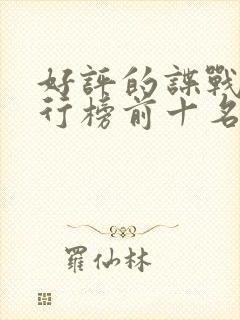 好評的諜戰
行榜前十名
羅仙林